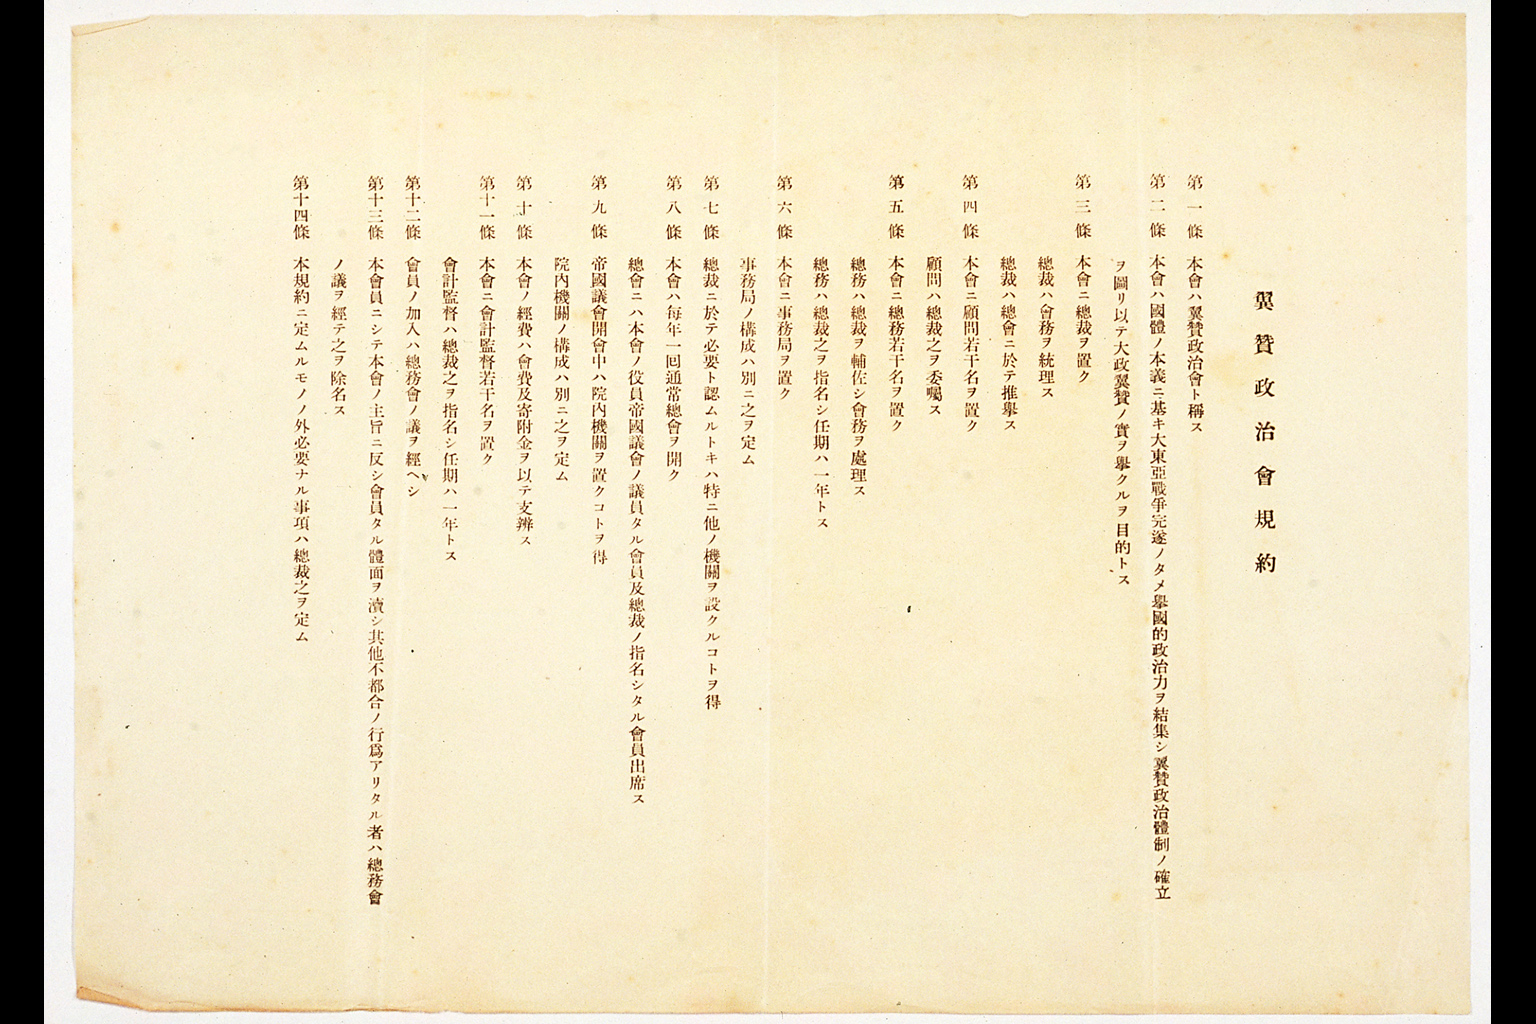 翼贊政治會規約
第一條 本會ハ翼贊政治會ト稱ス
第二條 本會ハ國體ノ本義ニ基キ大東亞戰爭完遂ノタメ擧國的政治力ヲ結集シ翼贊政治體制ノ確立
ヲ圖リ以テ大政翼贊ノ實ヲ擧クルヲ目的トス
第三條 本會ニ總裁ヲ置ク
總裁ハ會務ヲ統理ス
總裁ハ總會ニ於テ推擧ス
第四條 本會ニ顧問若干名ヲ置ク
顧問ハ總裁之ヲ委囑ス
第五條 本會ニ總務若干名ヲ置ク
總務ハ總裁ヲ輔佐シ會務ヲ處理ス
總務ハ總裁之ヲ指名シ任期ハ一年トス
第六條 本會ニ事務局ヲ置ク
事務局ノ構成ハ別ニ之ヲ定ム
第七條 總裁ニ於テ必要ト認ムルトキハ特ニ他ノ機關ヲ設クルコトヲ得
第八條 本會ハ每年一囘通常總會ヲ開ク
總會ニハ本會ノ役員帝國議會ノ議員タル會員及總裁ノ指名シタル會員出席ス
第九條 帝國議會開會中ハ院內機關ヲ置クコトヲ得
院內機關ノ構成ハ別ニ之ヲ定ム
第十條 本會ノ經費ハ會費及寄附金ヲ以テ支辨ス
第十一條 本會ニ會計監督若干名ヲ置ク
會計監督ハ總裁之ヲ指名シ任期ハ一年トス
第十二條 會員ノ加入ハ總務會ノ議ヲ經ヘシ
第十三條 本會員ニシテ本會ノ主旨ニ反シ會員タル體面ヲ瀆シ其他不都合ノ行爲アリタル者ハ總務會
ノ議ヲ經テ之ヲ除名ス
第十四條 本規約ニ定ムルモノノ外必要ナル事項ハ總裁之ヲ定ム